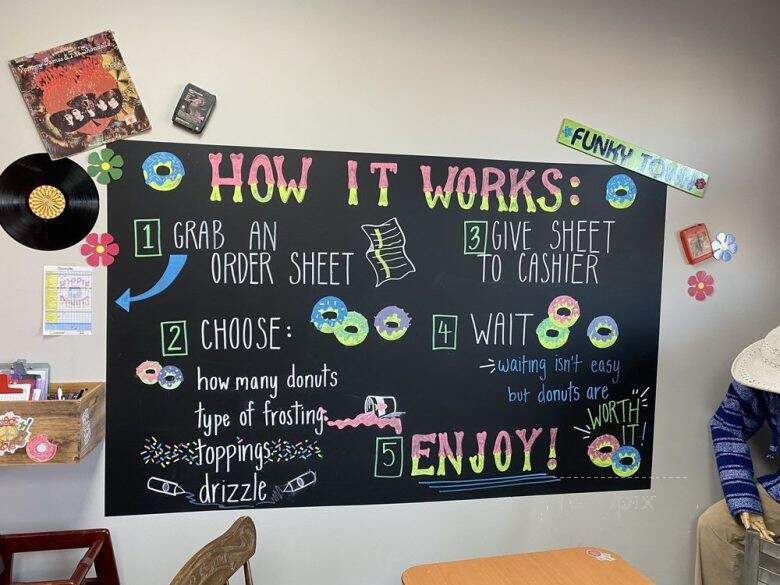 Tommy James & The Shondells
FUNKY TOWN
HOW IT WORKS:
1 GRAB AN
ORDER SHEET
2 CHOOSE:
how many donuts
type of frosting
toppings
drizzle
3 GIVE SHEET
TO CASHIER
4 WAIT
waiting isn't easy
but donuts are
WORTH
IT!
5 ENJOY!